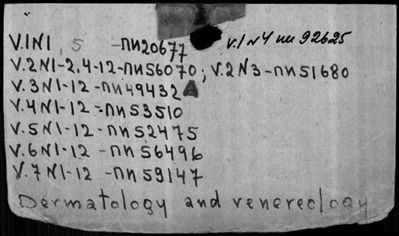 V.1N1, 5 -пи20677 V.1 N4 пи 92625
V.2N1-2,4-12-пи56070, V.2N3-пи51680
V.3N1-12-пи49432A
V.4N1-12-пи53510
V.5N1-12-пи52475
V.6N1-12-пи56496
V.7N1-12-пи59147
Dermatology and venereology